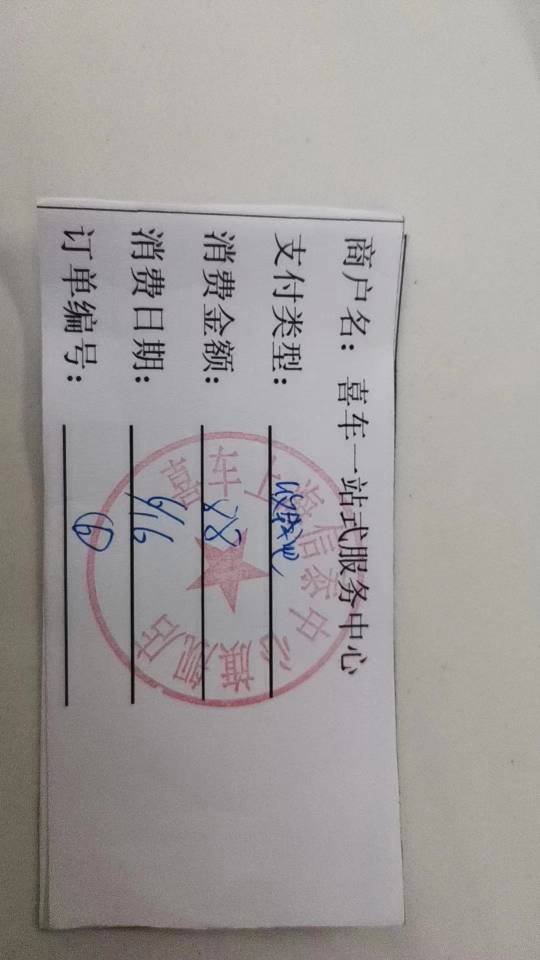 商户名: 喜车一站式服务中心
支付类型: 收钱吧
消费金额: 88
消费日期: 6/16
订单编号: ⑥
喜车上海信泰中心旗舰店